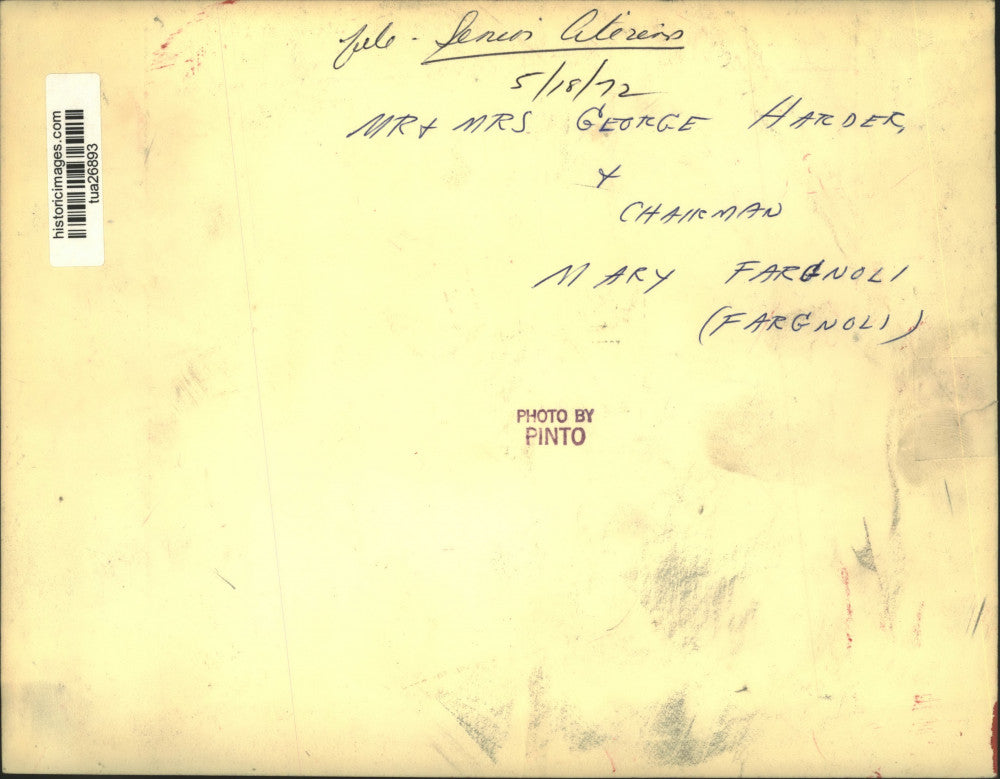 file - Senior Citizens
5/18/72
MR & MRS GEORGE HARDER,
&
CHAIRMAN
MARY FARGNOLI
(FARGNOLI)
PHOTO BY
PINTO
historicimages.com
tua26893